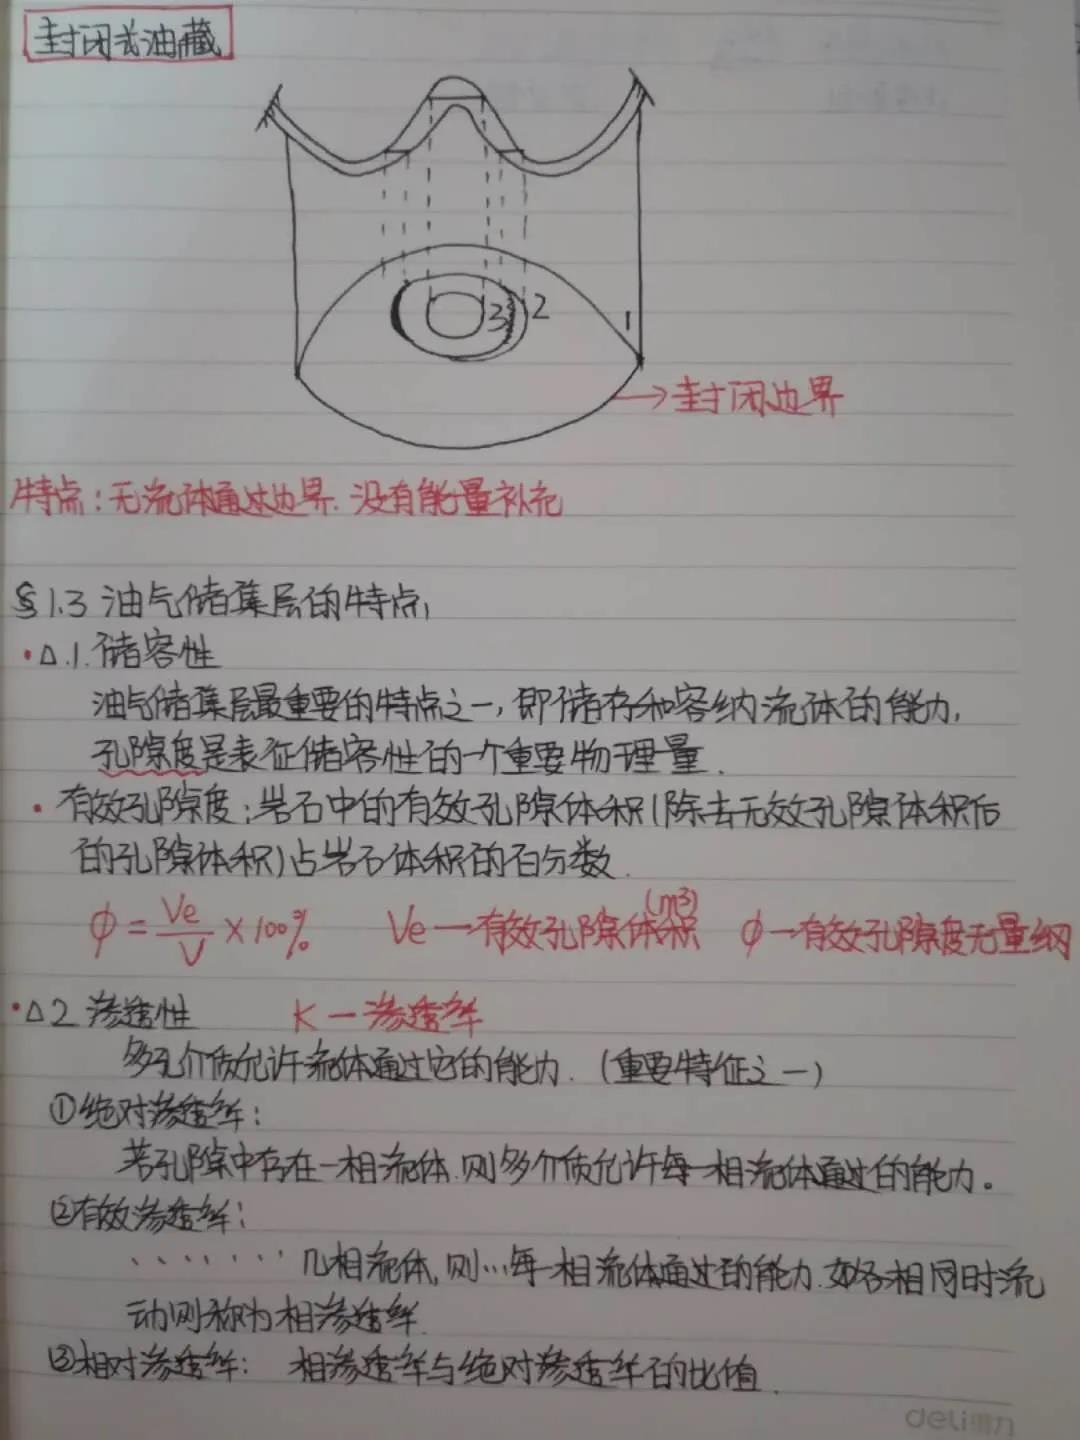 封闭式油藏
3 2 1
→封闭边界
特点:无流体通过边界.没有能量补充
§1.3 油气储集层的特点,
·△.1.储容性
油气储集层最重要的特点之一,即储存和容纳流体的能力,
孔隙度是表征储容性的一个重要物理量.
·有效孔隙度:岩石中的有效孔隙体积(除去无效孔隙体积后
的孔隙体积)占岩石体积的百分数.
φ=Ve/V×100% Ve—有效孔隙体积(m³) φ—有效孔隙度无量纲
·△2渗透性 K—渗透率
多孔介质允许流体通过它的能力.(重要特征之一)
①绝对渗透率:
若孔隙中存在一相流体.则多介质允许每一相流体通过的能力。
②有效渗透率:
·······几相流体,则…每一相流体通过的能力.如各相同时流
动则称为相渗透率.
③相对渗透率: 相渗透率与绝对渗透率的比值.
deli得力